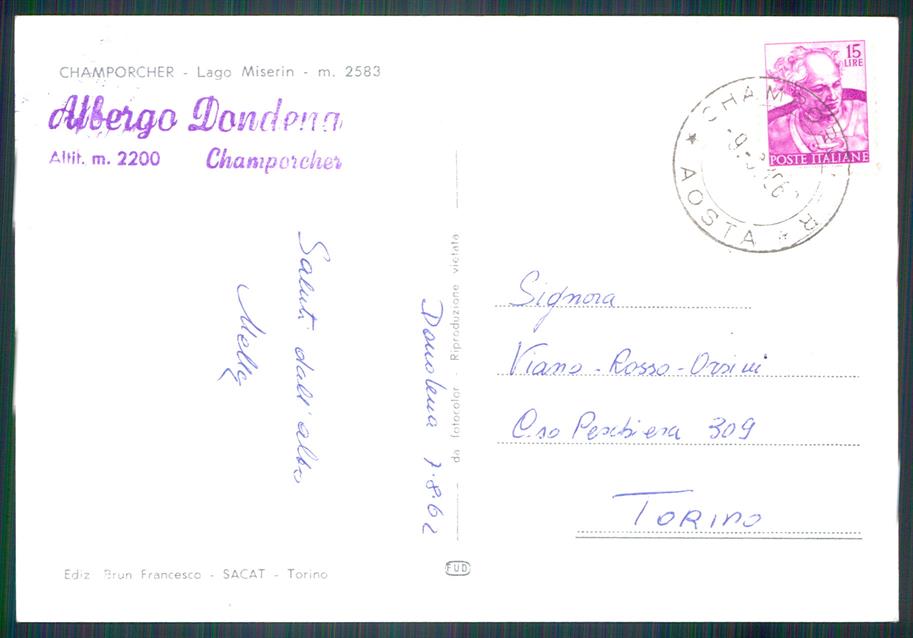 CHAMPORCHER - Lago Miserin - m. 2583
Albergo Dondena
Altit. m. 2200 Champorcher
15
LIRE
POSTE ITALIANE
CHAMPORCHER
AOSTA
Saluti dall'alba
Donolena 7.8.62
da fotocolor - Riproduzione vietata
Signora
Viano - Rosso - Orsini
C.so Peschiera 309
TORINO
Ediz. Brun Francesco - SACAT - Torino
FUD